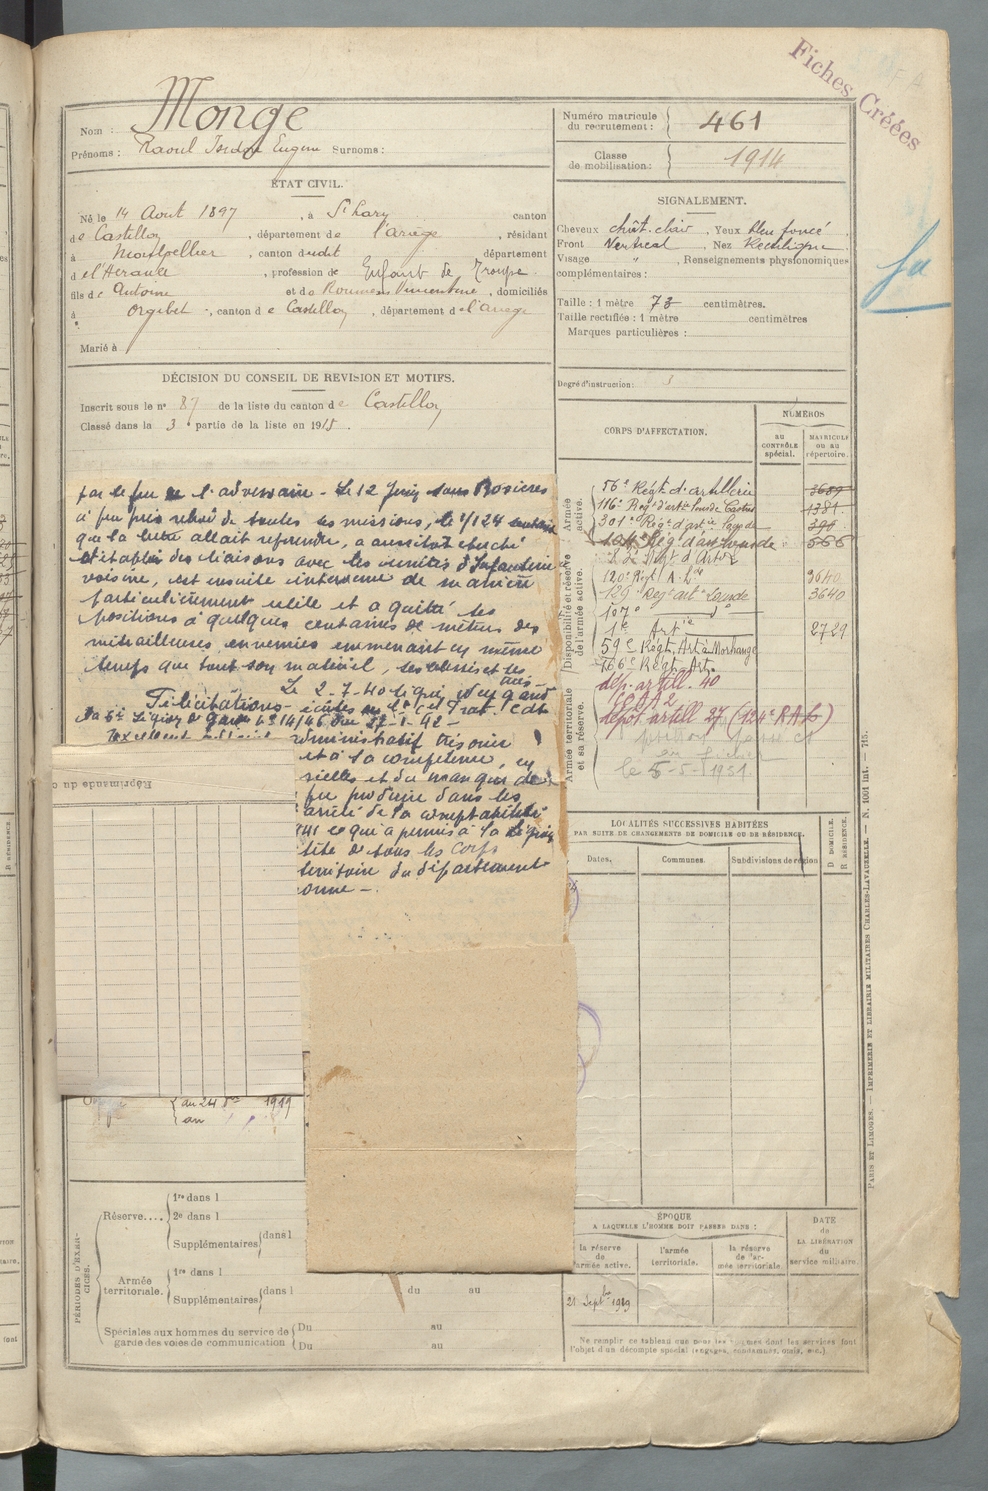 Fiches Créées
Nom : Monge
Prénoms : Raoul Eugene Surnoms :
Numéro matricule du recrutement : 461
Classe de mobilisation : 1914
ÉTAT CIVIL.
Né le 14 Aout 1897, à St Lary canton
de Castillon, département de l'Ariège, résidant
à Montpellier, canton dudit département
de l'Herault, profession de Enfant de Troupe
fils de Antoine et de Vincentine, domiciliés
à Orgibet, canton de Castillon, département de l'Ariege
Marié à
SIGNALEMENT.
Cheveux chât. clair, Yeux bleu foncé,
Front Vertical, Nez Rectiligne
Visage ", Renseignements physionomiques
complémentaires :
Taille : 1 mètre 73 centimètres.
Taille rectifiée : 1 mètre centimètres
Marques particulières :
Degré d'instruction : 3
DÉCISION DU CONSEIL DE REVISION ET MOTIFS.
Inscrit sous le n° 87 de la liste du canton de Castillon
Classé dans la 3e partie de la liste en 1915.
par le feu de l'adversaire - Le 12 Juin Rosieres
à peu près relevé de toutes ses missions, le 1/124
que la lutte allait reprendre, a aussitot cherché
à établir des liaisons avec les unités d'Infanterie
voisine, est ensuite intervenu de manière
particulièrement utile et a quitté ses
positions à quelques centaines de mètres des
mitrailleuses ennemies emmenant en même
temps que tout son matériel, ses blessés et ses
Le 2-7-40
Félicitations écrites du Lt Cel Cdt
la 5e Légion de Garde
administratif très
et à sa compétence, en
et du manque de
pu produire dans les
de la comptabilité
941 ce qui a permis à la Légion
tête de tous les Corps
territoire du département
onne -
Réprimande du
au 24 1919
au
CORPS D'AFFECTATION.
NUMÉROS
au CONTRÔLE spécial.
MATRICULE ou au répertoire.
Armée active.
Disponibilité et réserve de l'armée active.
Armée territoriale et sa réserve.
56e Régt d'artillerie 3689
116e Reg d'art lourde Castres 1381
301e Reg d'art Lourde 390
Reg d'art lourde 566
Regt d'Art
120e Regt A. L. 3640
129e Reg art Lourde 3640
107e do
1er Artie 2729
59e Régt. Art à Morhange
166e Régt. Art.
dép. artill. 40
dépot artill 27 (124e R A L)
le 5-5-1951
LOCALITÉS SUCCESSIVES HABITÉES
PAR SUITE DE CHANGEMENTS DE DOMICILE OU DE RÉSIDENCE.
Dates.
Communes.
Subdivisions de région
D. DOMICILE.
R. RÉSIDENCE.
PÉRIODES D'EXERCICES.
Réserve....
1re dans l
2e dans l
Supplémentaires dans l
Armée territoriale.
1re dans l
Supplémentaires dans l du au
Spéciales aux hommes du service de garde des voies de communication
Du au
Du au
ÉPOQUE
A LAQUELLE L'HOMME DOIT PASSER DANS :
la réserve de l'armée active.
l'armée territoriale.
la réserve de l'armée territoriale.
DATE de LA LIBÉRATION du service militaire.
21 Septbre 1919
Ne remplir ce tableau que pour les hommes dont les services font
l'objet d'un décompte spécial (engagés, condamnés, omis, etc.)
PARIS ET LIMOGES. — IMPRIMERIE ET LIBRAIRIE MILITAIRES CHARLES-LAVAUZELLE. — N. 1001 int. — 715.